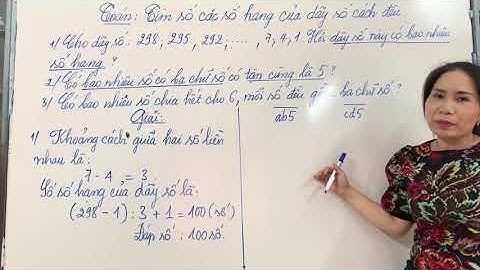 Toán: Tìm số các số hạng của dãy số cách đều
1/ Cho dãy số: 298, 295, 292, ....., 7, 4, 1 Hỏi dãy số này có bao nhiêu
số hạng?
2/ Có bao nhiêu số có ba chữ số có tận cùng là 5?
3/ Có bao nhiêu số chia hết cho 6, mỗi số đều gồm ba chữ số?
ab5 cd5
Giải:
1/ Khoảng cách giữa hai số liền
nhau là:
7 - 4 = 3
Số số hạng của dãy số là:
(298 - 1) : 3 + 1 = 100 (số)
Đáp số: 100 số.